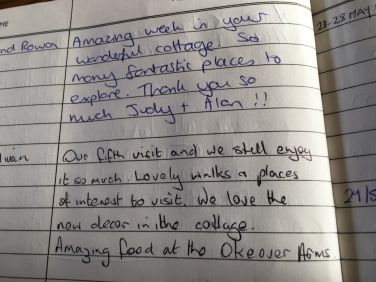 ME
nd Rowan
Amazing week in your
wonderful cottage. So
many fantastic places to
explore. Thank you so
much Judy + Alan !!
23-28 MAY
Our fifth visit and we still enjoy
it so much. Lovely walks & places
of interest to visit. We love the
new decor in the cottage.
Amazing food at the Okeover Arms